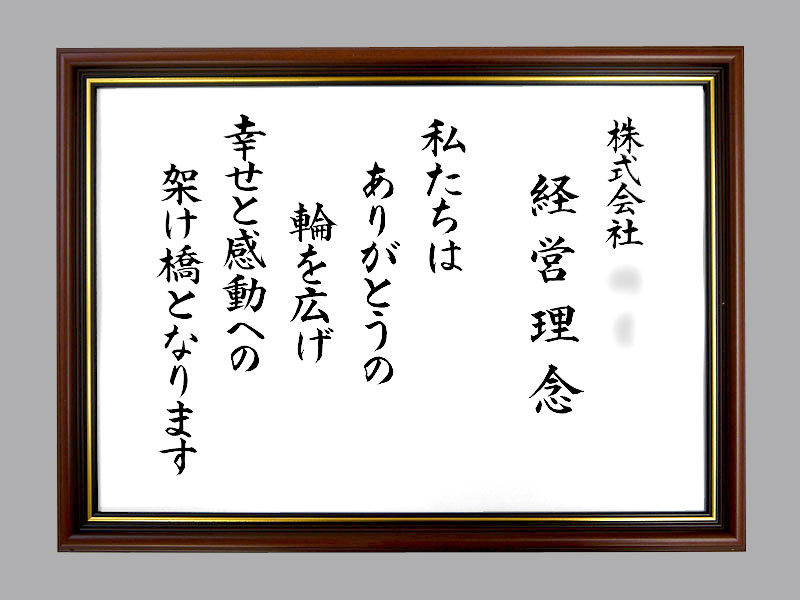 株式会社
経営理念
私たちは
ありがとうの
輪を広げ
幸せと感動への
架け橋となります